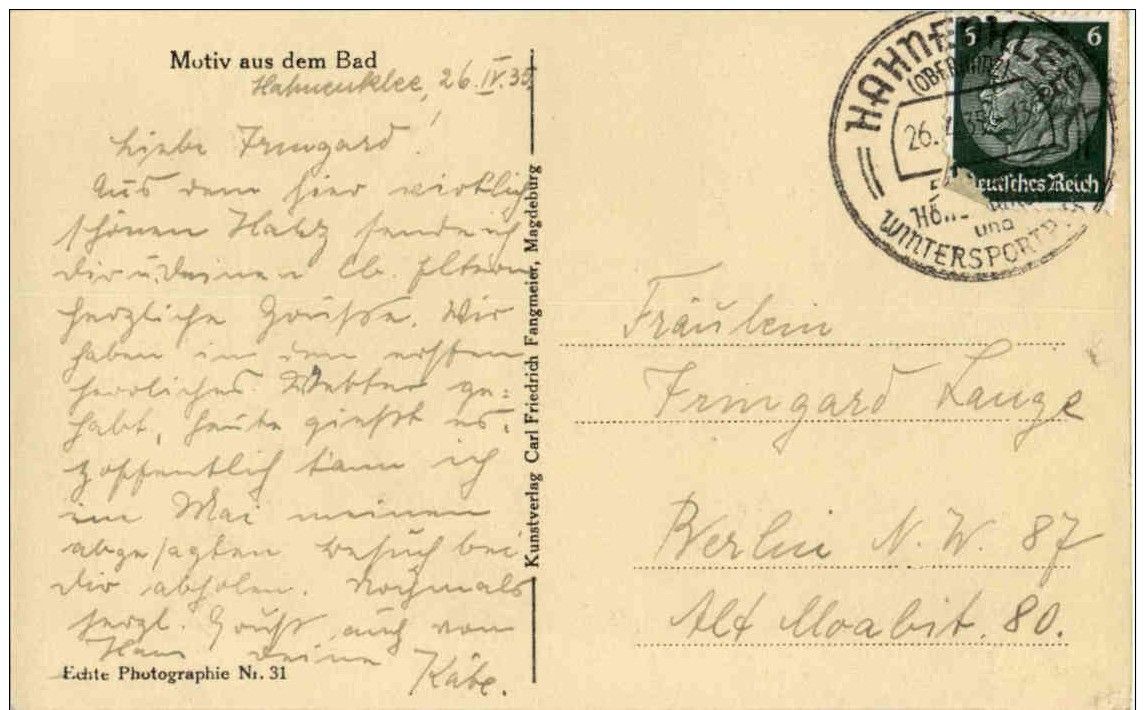 Motiv aus dem Bad
Hahnenklee, 26.IV.35
Liebe Irmgard!
Aus dem hier wirklich
schönen Harz sende ich
Dir u. Deinen lb. Eltern
herzliche Grüsse. Wir
haben in den ersten
herrliches Wetter ge=
habt, heute gießt es.
Hoffentlich kann ich
im Mai meinen
abgesagten Besuch bei
Dir abholen. Nochmals
herzl. Gruß auch von
Hans Deine
Käte.
Echte Photographie Nr. 31
Kunstverlag Carl Friedrich Fangmeier, Magdeburg
HAHNENKLEE
(OBERHARZ)
26. 35
und
WINTERSPORTPL
5 6
Deutsches Reich
Fräulein
Irmgard Lange
Berlin N.W. 87
Alt Moabit 80.